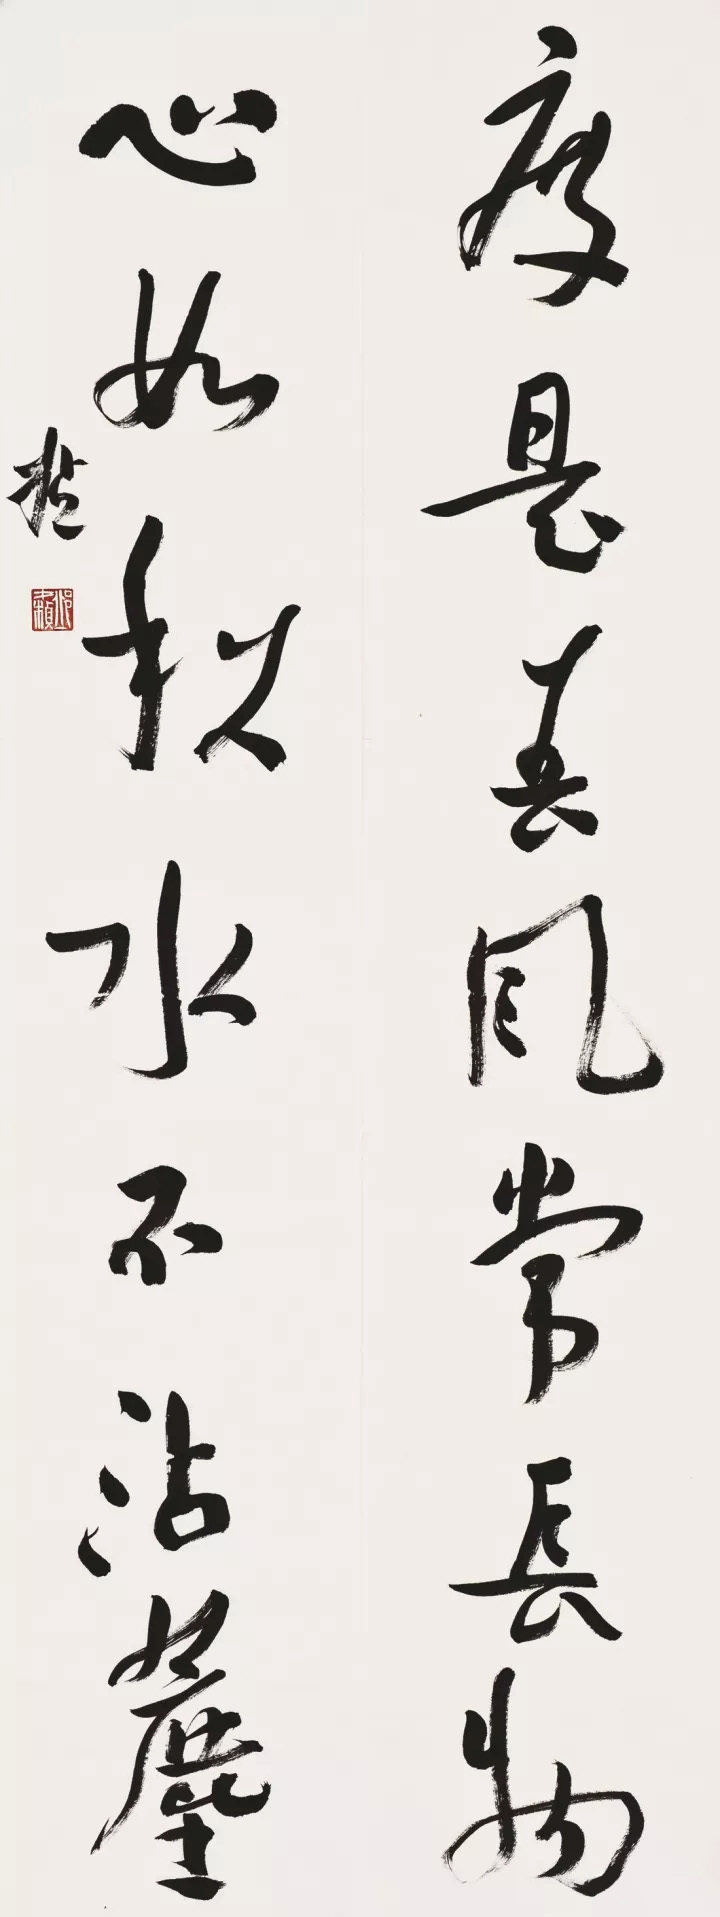 度是春風常長物
心如秋水不沾塵